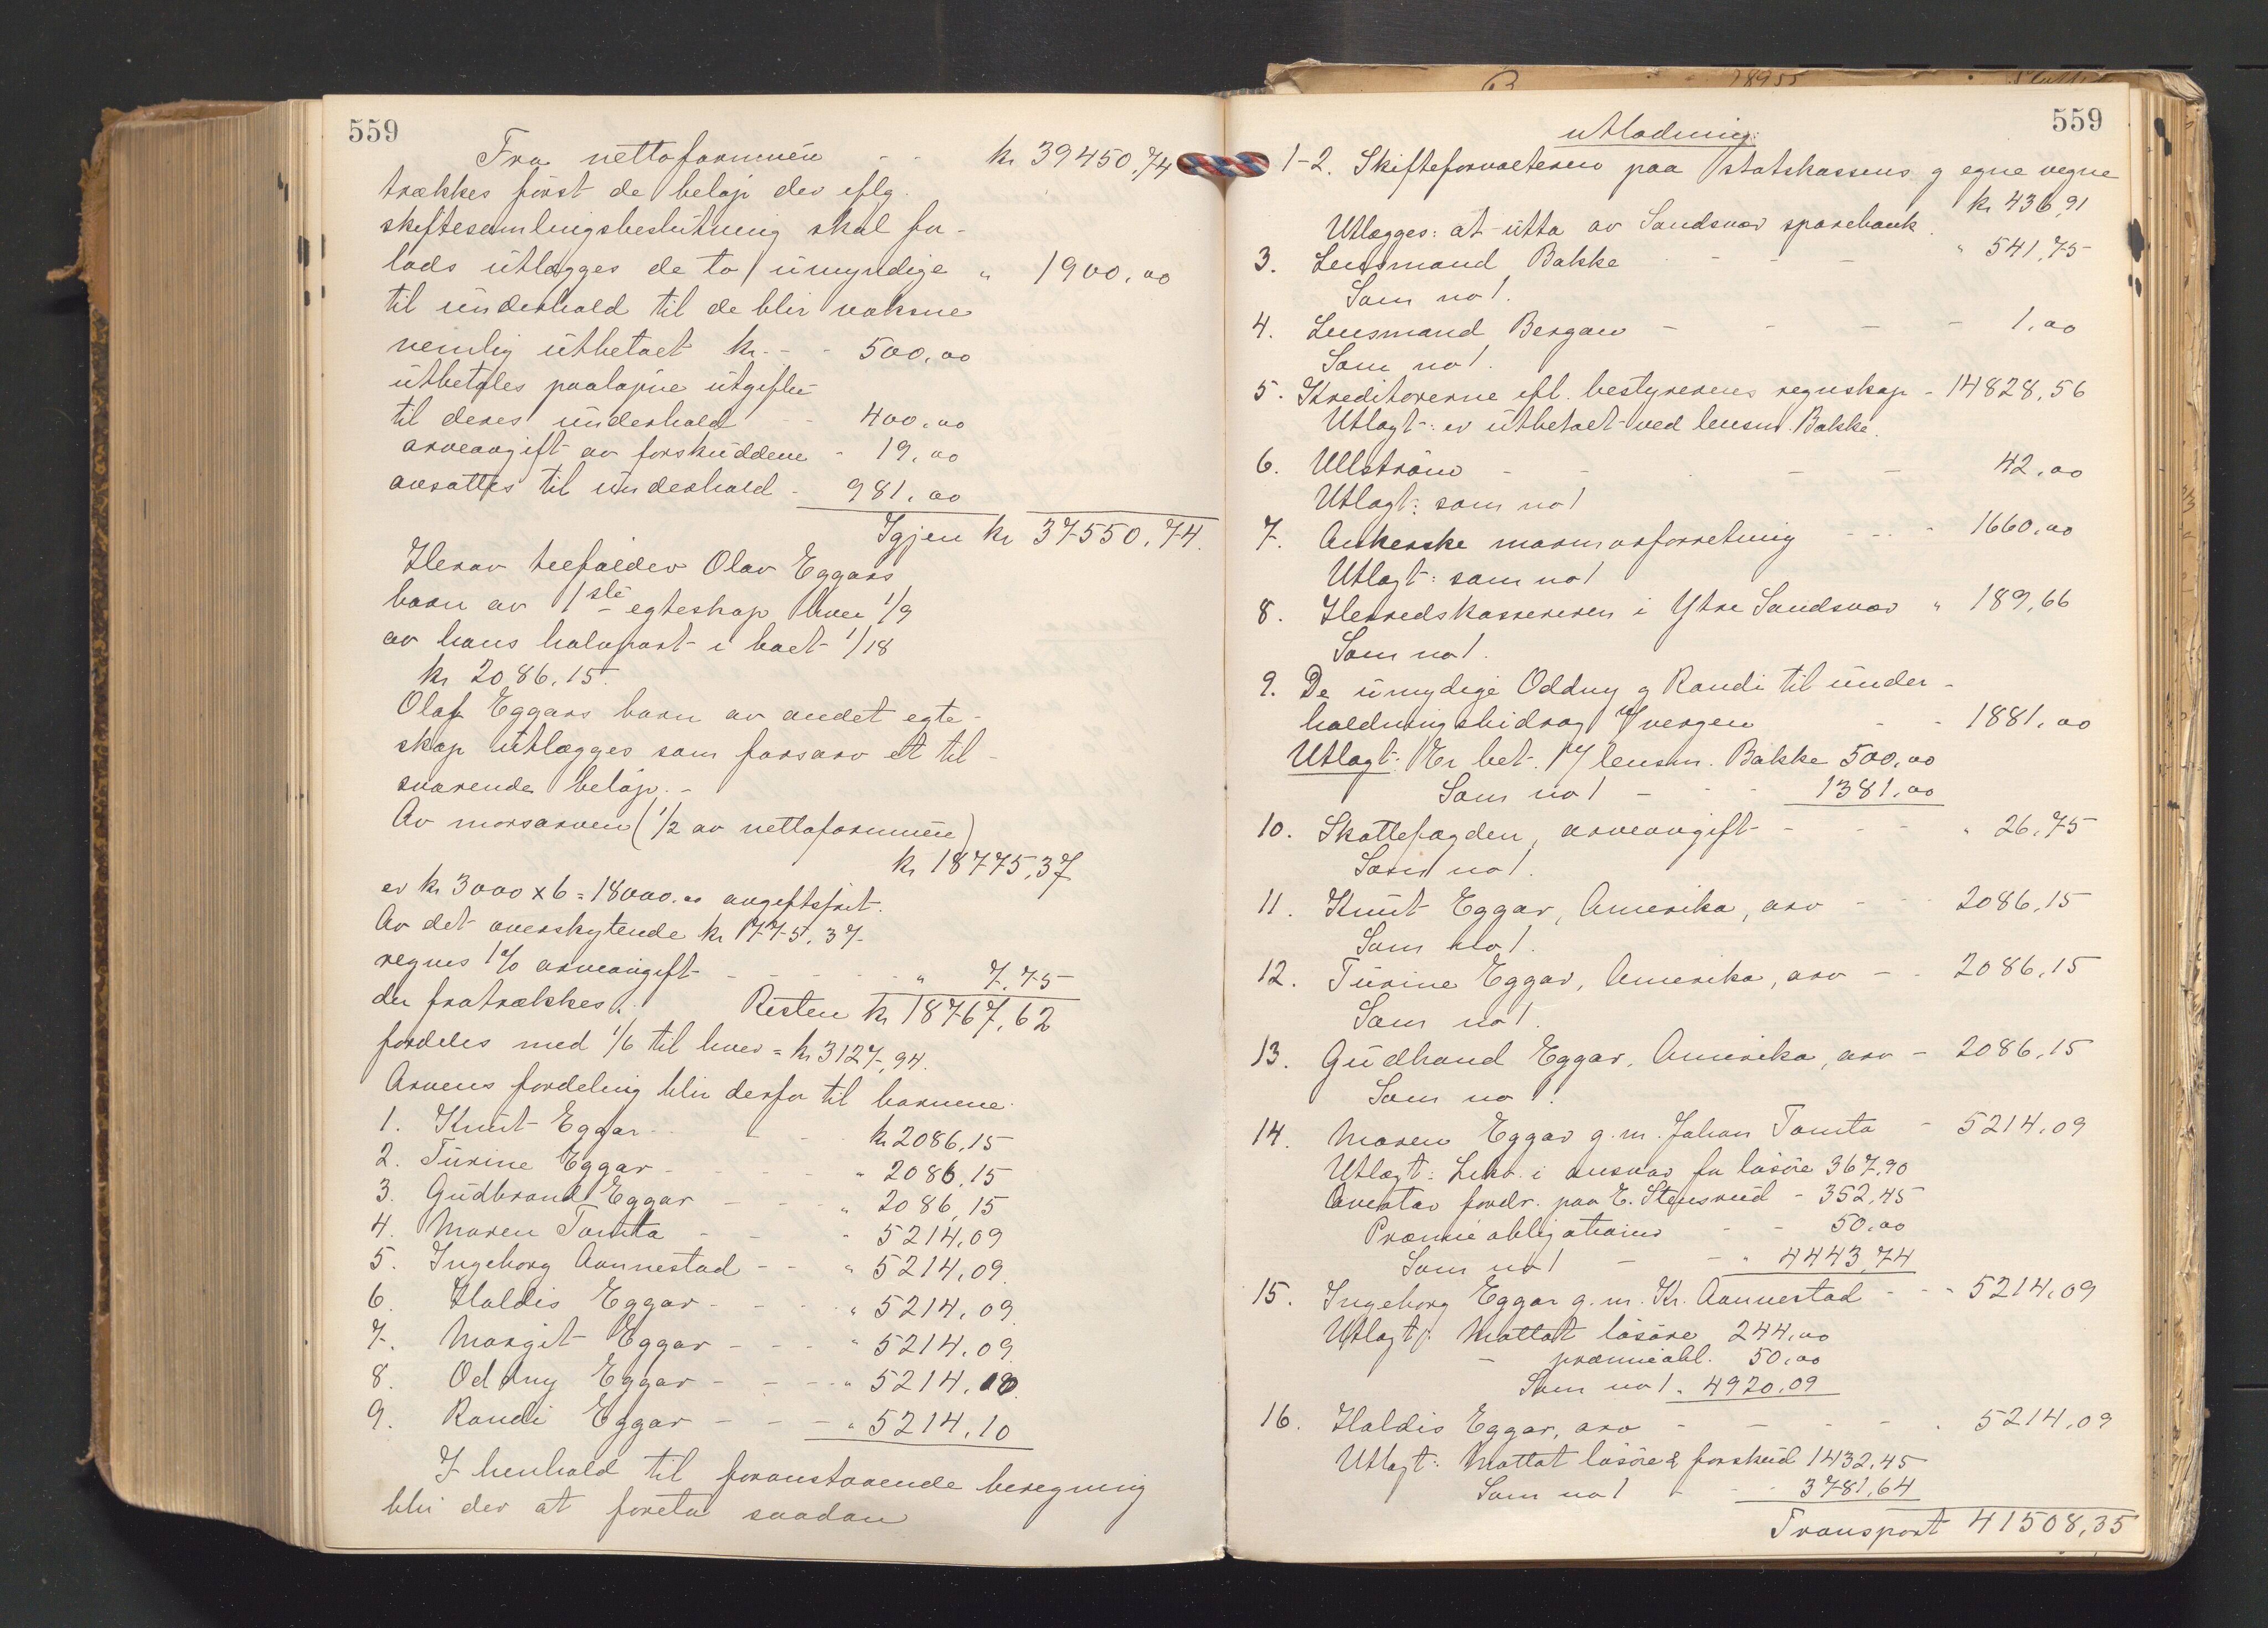 559
Fra nettoformuen - - kr 39450,74
trækkes först de belöp der iflg.
skiftesamlingsbeslutning skal for-
lods utlægges de to umyndige " 1900,00
til underhold til de blir voksne
nemlig utbetalt kr. - - 500,00
utbetales paalöpne utgifter
til deres underhold - - 400,00
arveavgift av forskuddene - 19,00
avsættes til underhold - 981,00
Igjen kr 37550,74.
Herav tilfalder Olav Eggars
barn av 1ste egteskap hver 1/9
av hans halvpart i boet 1/18
kr 2086,15.
Olaf Eggars barn av andet egte-
skap utlægges som farsarv et til-
svarende belöp. -
Av morsarven (1/2 av nettoformuen)
kr 18775,37
er kr 3000 x 6 = 18000,00 avgiftsfrit.
Av det overskytende kr 775,37
regnes 1% arveavgift - - - - - " 7,75
der fratrækkes. Resten kr 18767,62
fordeles med 1/6 til hver = kr 3127,94.
Arvens fordeling blir derfor til barnene.
1. Knut Eggar - - - kr 2086,15
2. Turine Eggar - - - - " 2086,15
3. Gudbrand Eggar - - - " 2086,15
4. Maren Tomta - - - " 5214,09
5. Ingeborg Aannestad - - " 5214,09.
6. Haldis Eggar - - - " 5214,09.
7. Margit Eggar - - - " 5214,09.
8. Oddny Eggar - - - " 5214,10.
9. Randi Eggar - - - " 5214,10
I henhold til foranstaaende beregning
blir der at foreta saadan
559
utlodning:
1-2. Skifteforvalteren paa statskassens g egne vegne
kr 436,91
Utlægges: at utta av Sandsvær sparebank.
3. Lensmand Bakke - - - " 541,75
Som no 1.
4. Lensmand Bergan - - - - 1,00
Som no 1.
5. Kreditorerne efl. bestyrerens regnskap - 14828,56
Utlagt: er utbetalt ved lensm. Bakke.
6. Ullström - - - - 42,00
Utlagt: som no 1
7. Ankerske marmorforretning - - - 1660,00
Utlagt: som no 1
8. Herredskassereren i Ytre Sandsvær " 189,66
Som no 1.
9. De umydige Oddny g Randi til under-
holdningsbidrag v/ vergen - - 1881,00
Utlagt: Er bet. v/ lensm. Bakke 500,00
Som no 1 - - - 1381,00
10. Skattefogden, arveavgift - - - " 26,75
Som no 1.
11. Knut Eggar, Amerika, arv - - - 2086,15
Som no 1.
12. Turine Eggar, Amerika, arv - - 2086,15
Som no 1.
13. Gudbrand Eggar, Amerika, arv - 2086,15
Som no 1.
14. Maren Eggar g. m. Johan Tomta - 5214,09
Utlagt: Likv. i ansvar for lösöre 367,90
Overtar fordr. paa E. Stensrud - 352,45
Præmieobligationer - - 50,00
Som no 1 - - " 4443,74
15. Ingeborg Eggar g. m. Kr. Aannestad - - - 5214,09
Utlagt: Mottat lösöre 244,00
- præmieobl. 50,00
Som no 1 " 4920,09
16. Haldis Eggar, arv - - - - - 5214,09
Utlagt: Mottat lösöre & forskud 1432,45
Som no 1 - - - 3781,64
Transport 41508,35